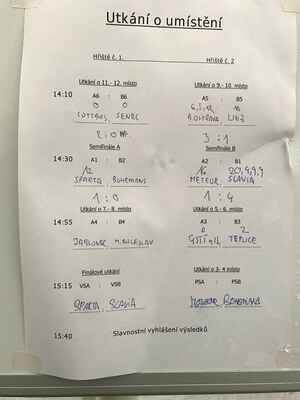 Utkání o umístění
Hřiště č. 1. Hřiště č. 2
Utkání o 11.- 12. místo Utkání o 9.- 10. místo
14:10 A6 : B6 A5 : B5
0 0
2:0 3:1
Semifinále A Semifinále B
14:30 A1 : B2 A2 : B1
12 16 20,4,9,9
SPARTA, BOHEMANS METEOR, SLAVIA
1:0 1:4
Utkání o 7.- 8. místo Utkání o 5.- 6. místo
14:55 A4 : B4 A3 : B3
0 2
JABLONEC, M. BOLESLAV TEPLICE
Finálové utkání Utkání o 3- 4 místo
15:15 VSA : VSB PSA : PSB
SPARTA, SLAVIA METEOR, BOHEMANS
15:40 Slavnostní vyhlášení výsledků